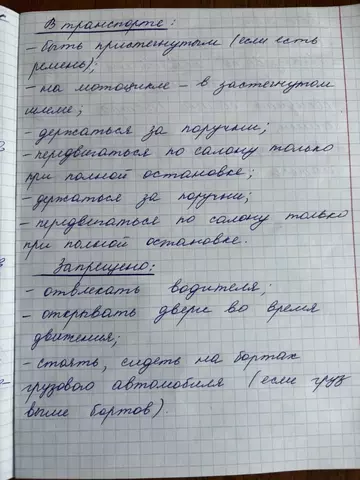 В транспорте:
- быть пристегнутым (если есть
ремень);
- на мотоцикле - в застегнутом
шлеме;
- держаться за поручни;
- передвигаться по салону только
при полной остановке;
- держаться за поручни;
- передвигаться по салону только
при полной остановке.
Запрещено:
- отвлекать водителя;
- открывать двери во время
движения;
- стоять, сидеть на бортах
грузового автомобиля (если груз
выше бортов).